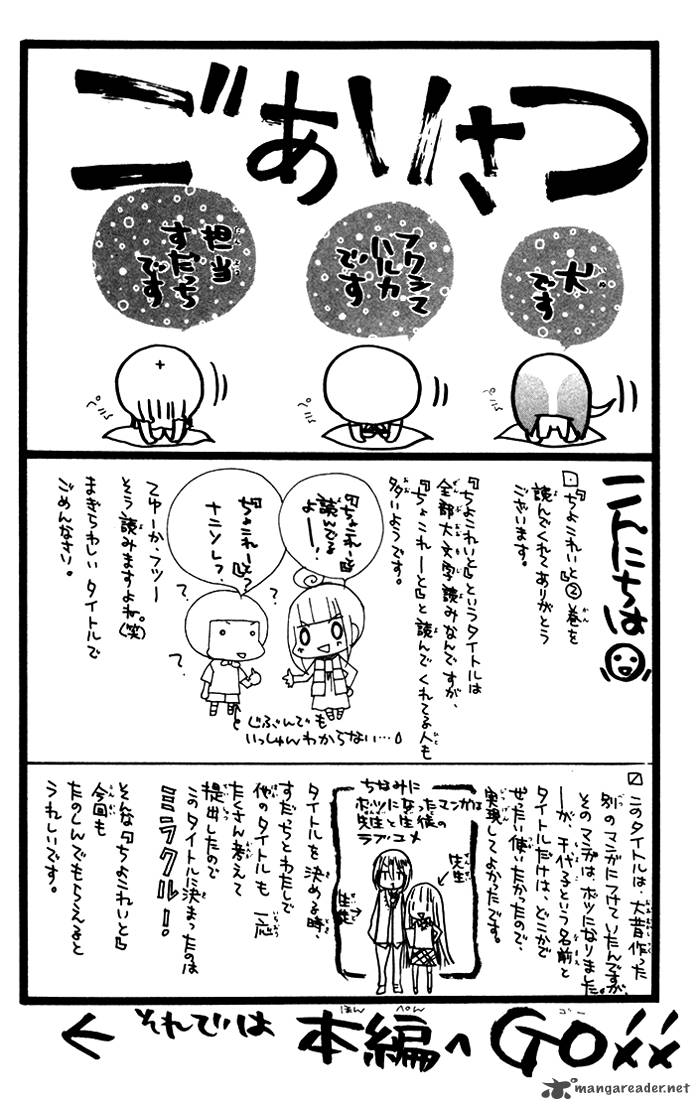 ごあいさつ
犬
です
フクシマ
ハルカ
です
担当
すだっち
です
ペコ
ペコ
ペコ
こんにちは
『ちよこれいと』②巻を
読んでくれてありがとう
ございます。
『ちよこれいと』というタイトルは
全部大文字読みなんですが、
『ちょこれーと』と読んでくれてる人も
多いようです。
『ちょこれーと』
読んでるよー!
『ちょこれーと』?
ナニソレ?
じぶんでも
いっしゅんわからない…
てゆーか、フツー
そう読みますよね。(笑)
まぎらわしいタイトルで
ごめんなさい。
このタイトルは、大昔作った
別のマンガにつけていたんですが、
そのマンガは、ボツになりました。
ーが、千代子という名前と
タイトルだけは、どこかで
ぜったい使いたかったので、
実現してよかったです。
ちなみに
ボツになったマンガは
先生と生徒の
ラブコメ
先生
生徒
タイトルを決める時、
すだちとわたしで
他のタイトルも一応
たくさん考えて
提出したので
このタイトルに決まったのは
ミラクル!!
そんな『ちよこれいと』
今回も
たのしんでもらえると
うれしいです。
それでは 本編へ GO
←
mangareader.net